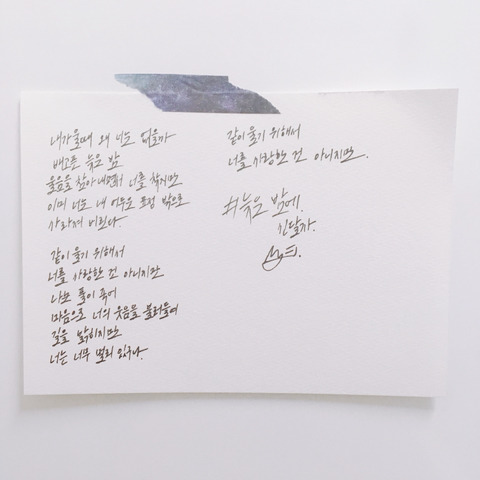 내가 울 때 왜 너는 없을까
배고픈 늦은 밤
울음을 참아내면서 너를 찾지만
이미 너는 내 어두운 표정 밖으로
사라져 버린다.
같이 울기 위해서
너를 사랑한 건 아니지만
나는 풀이 죽어
마음으로 너의 웃음을 불러들여
길을 밝히지만
너는 너무 멀리 있구나.
같이 울기 위해서
너를 사랑한 건 아니지만.
#늦은 밤에.
신달자.